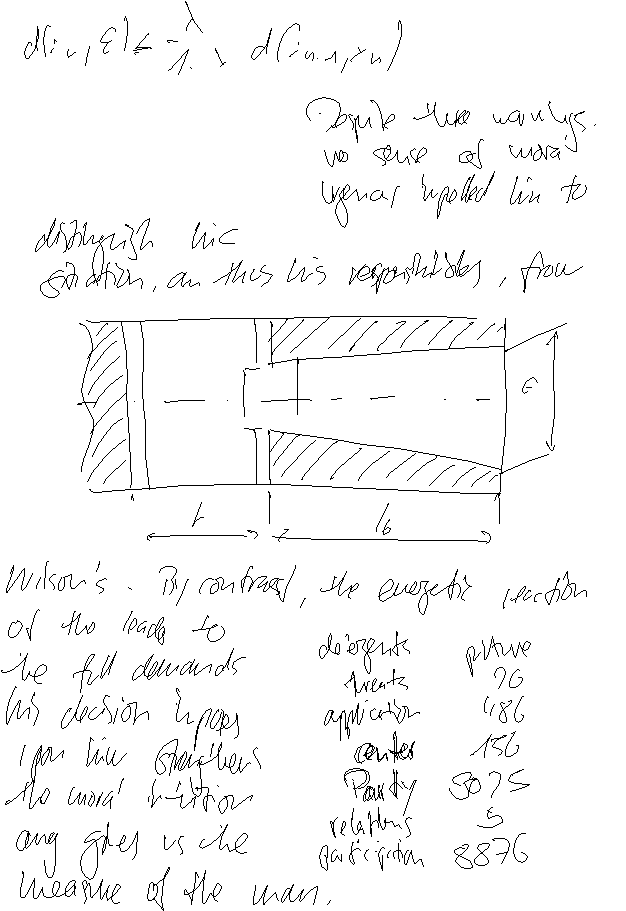 Despite these warnings.
no sense of mora
urgency impelled him to
distinguish his
situation, an thus his responsibilities, from
L
l6
E
Wilson's. By contrast, the energetic reaction
of the leads to
the full demands
his decision imposes
upon him strengthens
the mora intuition
any gives us the
measure of the man.
detergents picture
treats 76
application 486
center 156
Party 3075
relations 5
participation 8876